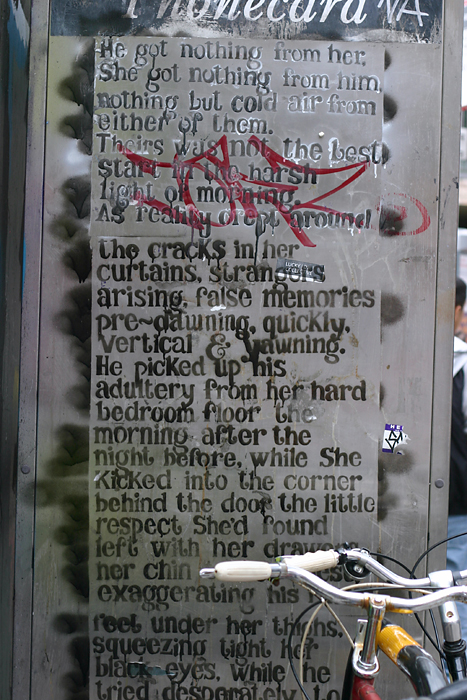 Phonecard
He got nothing from her,
She got nothing from him,
nothing but cold air from
either of them.
Theirs was not the best
start in the harsh
light of morning.
As reality crept around
the cracks in her
curtains, strangers
arising, false memories
pre-dawning, quickly,
vertical & yawning.
He picked up his
adultery from her hard
bedroom floor the
morning after the
night before, while She
Kicked into the corner
behind the door the little
respect She'd found
left with her drawers
her chin
exaggerating his
feet under her thighs,
squeezing tight her
black eyes, while he
tried desperately to